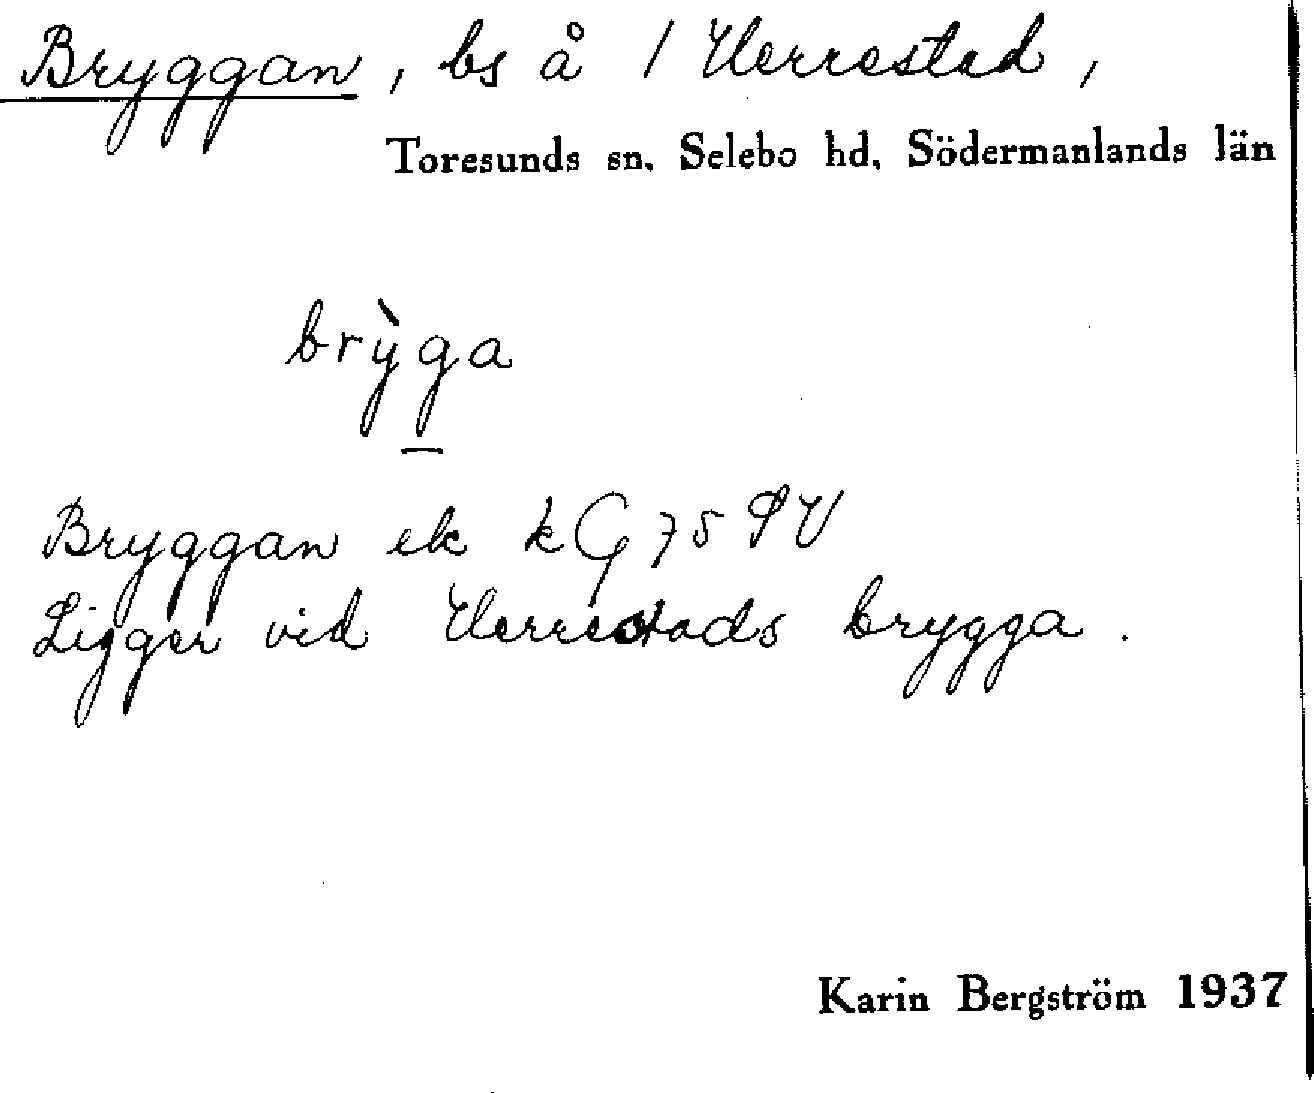 Bryggan, bs å / Herrestad,
Toresunds sn. Selebo hd, Södermanlands län
brỳga
Bryggan ek kG 75 SV
Ligger vid Herrestads brygga.
Karin Bergström 1937